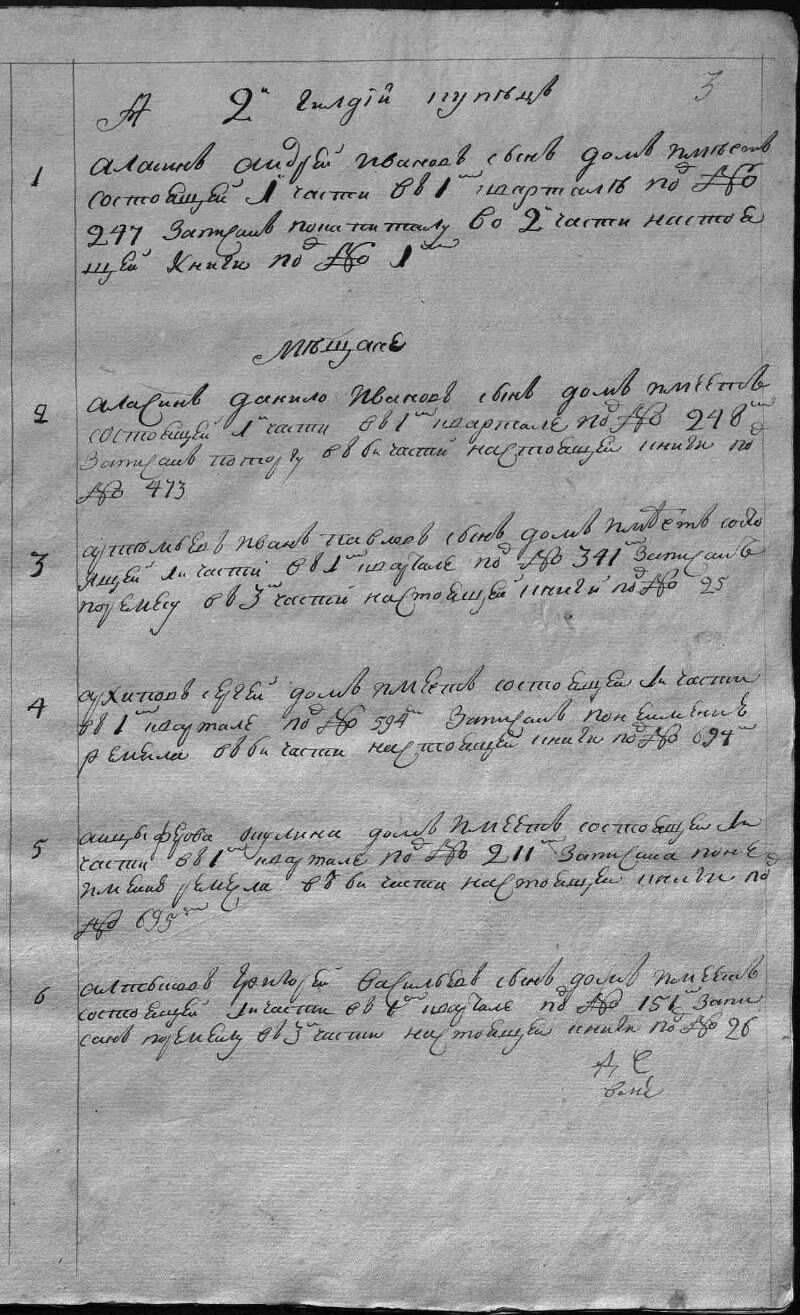 А 2й гилдiй купецъ 3
1 аласинъ андрей ивановъ сынъ домъ имѣетъ
состоящей 1й части въ 1мъ кварталѣ подъ №
247 записанъ покапиталу во 2й части настоя
щей книги под № 1мъ
мѣщане
2 аласинъ данило ивановъ сынъ домъ имеетъ
состоящей 1й части въ 1мъ квартале под № 248мъ
записанъ поторгу въ 6й частй настоящей книги под
№ 473
3 иванъ павловъ сынъ домъ имѣетъ состо
ящей 1й частй въ 1мъ квартале под № 341мъ записанъ
поремеслу въ 3й частй настоящей книгй под № 25
4 архиповъ сергей домъ имеетъ состоящей 1й части
въ 1мъ квартале под № 594мъ записанъ понеимению
ремесла въ 6й части настоящей книги под № 694мъ
5 анцыферова акулина домъ имеетъ состоящей 1й
части въ 1мъ квартале под № 211мъ записана поне
имению ремесла въ 6й части настоящей книги под
№ 695мъ
6 григорей васильевъ сынъ домъ имеетъ
состоящей 1й части въ 1мъ квартале под № 151мъ запи
санъ поремеслу въ 3й части настоящей книги под № 26